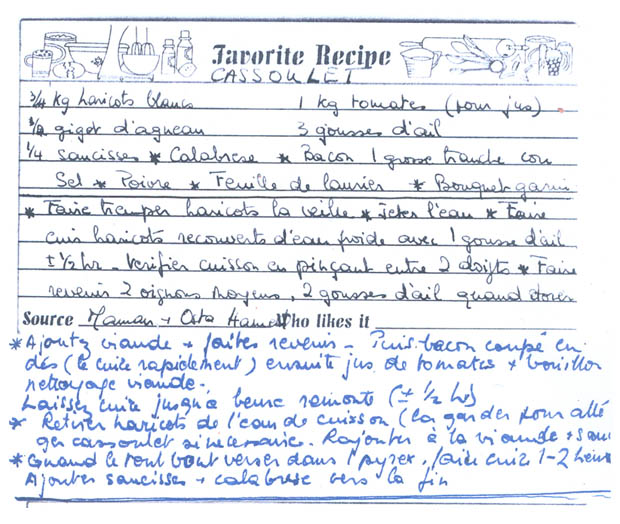 Favorite Recipe
CASSOULET
3/4 kg haricots blancs 1 kg tomates (pour jus)
1/2 gigot d'agneau 3 gousses d'ail
1/4 saucisses * Calabrese * Bacon 1 grosse tranche
Sel * Poivre * Feuille de laurier * Bouquet garni
* Faire tremper haricots la veille * Jeter l'eau * Faire
cuir haricots recouverts d'eau froide avec 1 gousse d'ail
± 1/2 hr - Verifier cuisson en pinçant entre 2 doigts * Faire
revenir 2 oignons moyens, 2 gousses d'ail quand dorer
Source Maman + Who likes it
* Ajoutez viande + faites revenir - Puis bacon coupé en
dés (le cuire rapidement) ensuite jus de tomates + bouillon
nettoyage viande.
Laissez cuire jusqu'à beurre remonte (± 1/2 hr)
* Retirer haricots de l'eau de cuisson (la garder pour allé
ger cassoulet si necessaire. Rajouter à la viande +
* Quand le tout bout verser dans 1 pyrex, faire cuire 1-2 heures
Ajouter saucisses + calabrese vers la fin